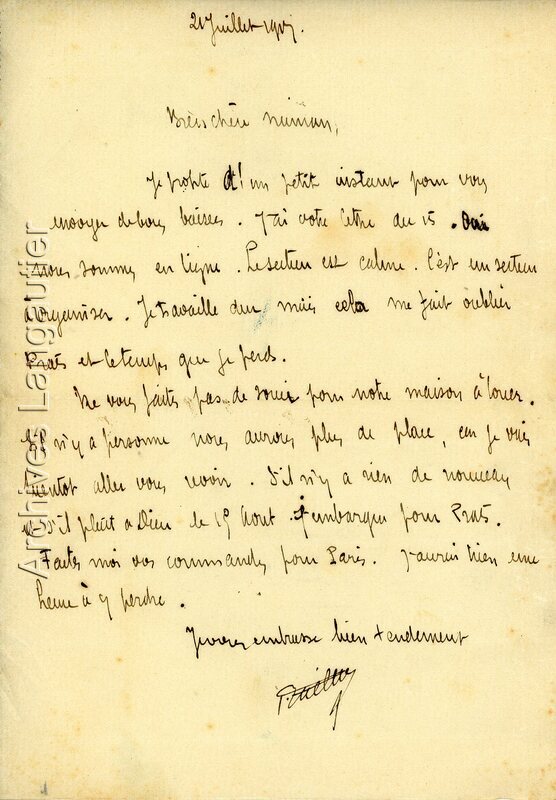 21 Juillet 1917.
Bien chère maman,
Je profite d'un petit instant pour vous
envoyer de bons baisers. J'ai votre lettre du 15. Oui
nous sommes en ligne. Le secteur est calme. C'est un secteur
à organiser. Je travaille dur mais cela me fait oublier
Prats et le temps que je perds.
Ne vous faites pas de souci pour notre maison à louer.
S'il n'y a personne nous aurons plus de place, car je vais
bientot aller vous revoir. S'il n'y a rien de nouveau
et s'il plait à Dieu le 15 Aout j'embarque pour Prats.
Faites moi vos commandes pour Paris. J'aurai bien une
heure à y perdre.
Je vous embrasse bien tendement
Archives Langrutier